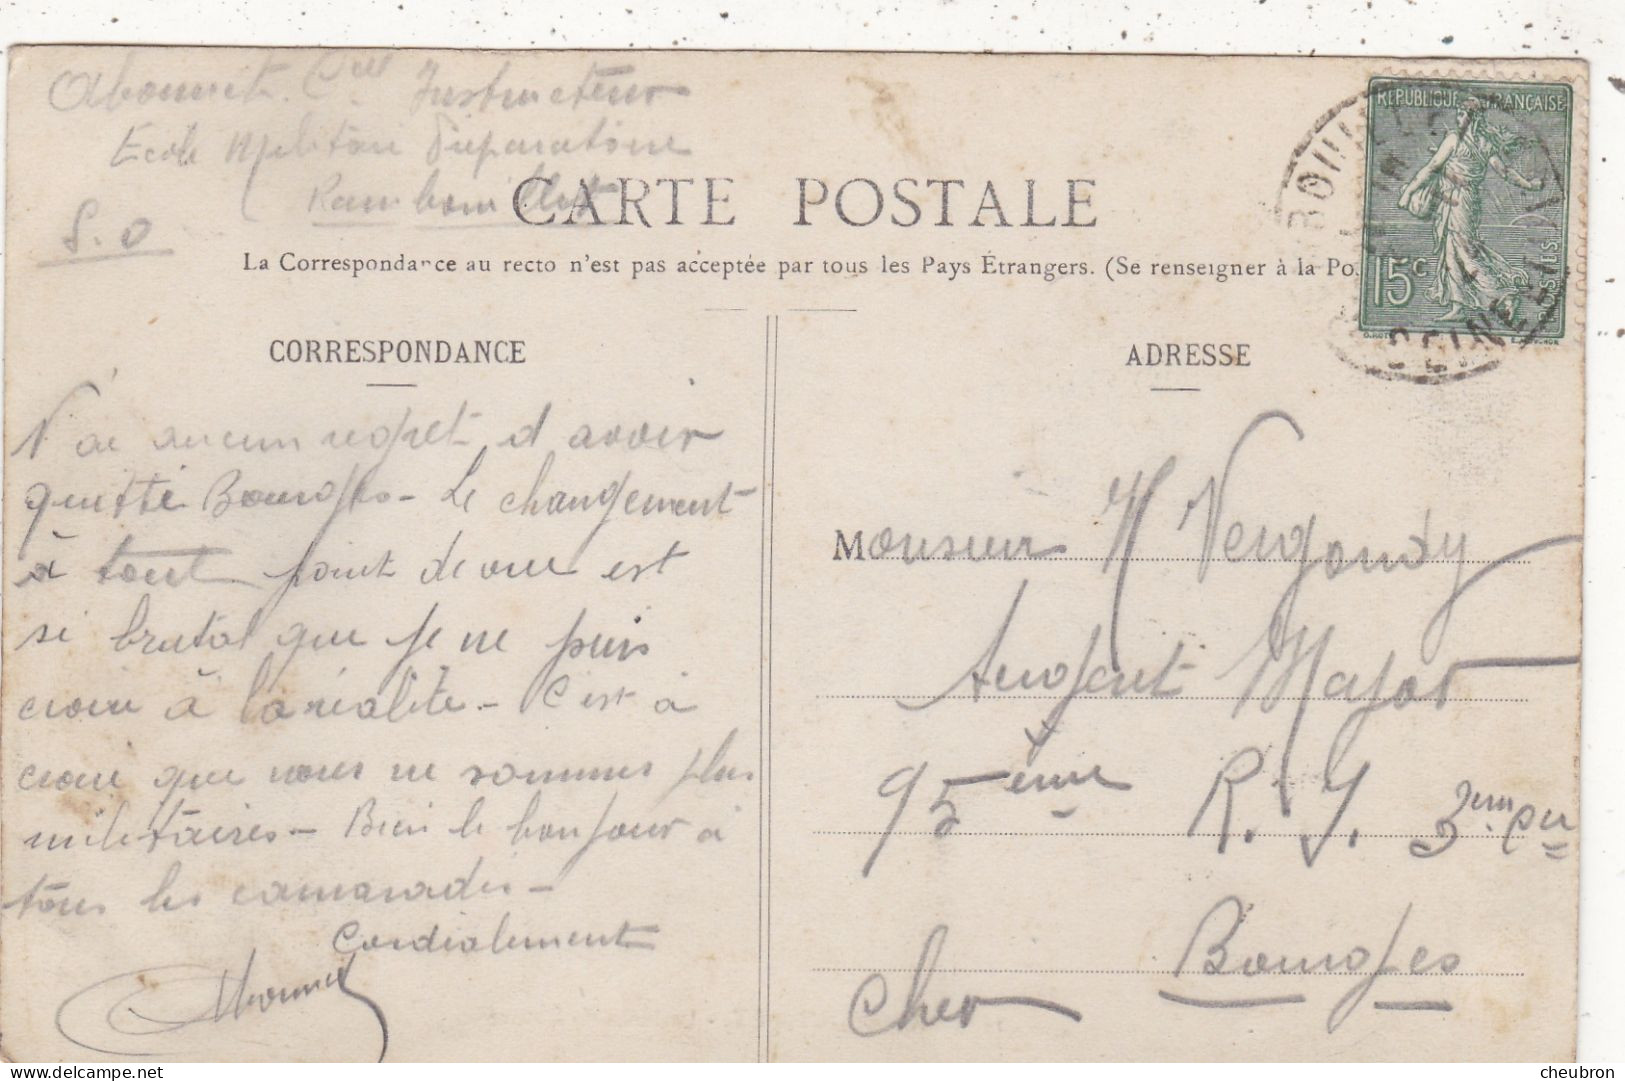 Abonnet. Cal Instructeur
Ecole Militaire Préparatoire
Rambouillet
S.O
CARTE POSTALE
La Correspondance au recto n'est pas acceptée par tous les Pays Étrangers. (Se renseigner à la Po
RÉPUBLIQUE FRANÇAISE
15c
POSTES
CORRESPONDANCE
N'ai aucun regret d'avoir
quitté Bourges - Le changement
à tout point de vue est
si brutal que je ne puis
croire à la réalité - C'est à
croire que nous ne sommes plus
militaires - Bien le bonjour à
tous les camarades -
Cordialement
Abonnet
ADRESSE
Monsieur Vergondy
Sergent Major
95ème R.I. 3ème Cie
Bourges
Cher
cheubron.com